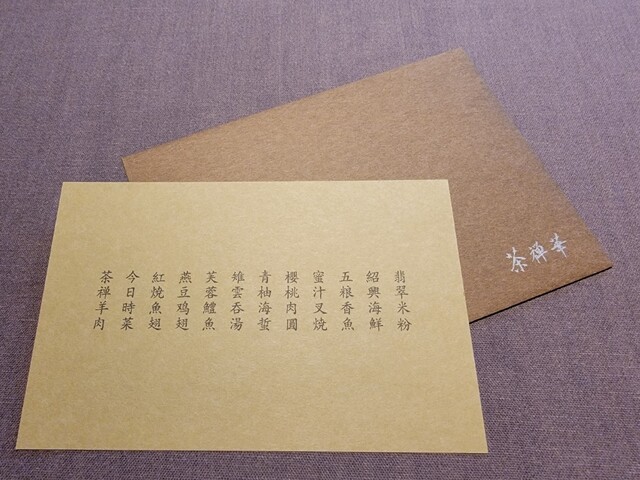 翡翠米粉
紹興海鮮
五粮香魚
蜜汁叉燒
櫻桃肉圓
青柚海蜇
雉雲吞湯
芙蓉鱧魚
燕豆鸡翅
紅燒魚翅
今日時菜
茶禅羊肉
茶禅華